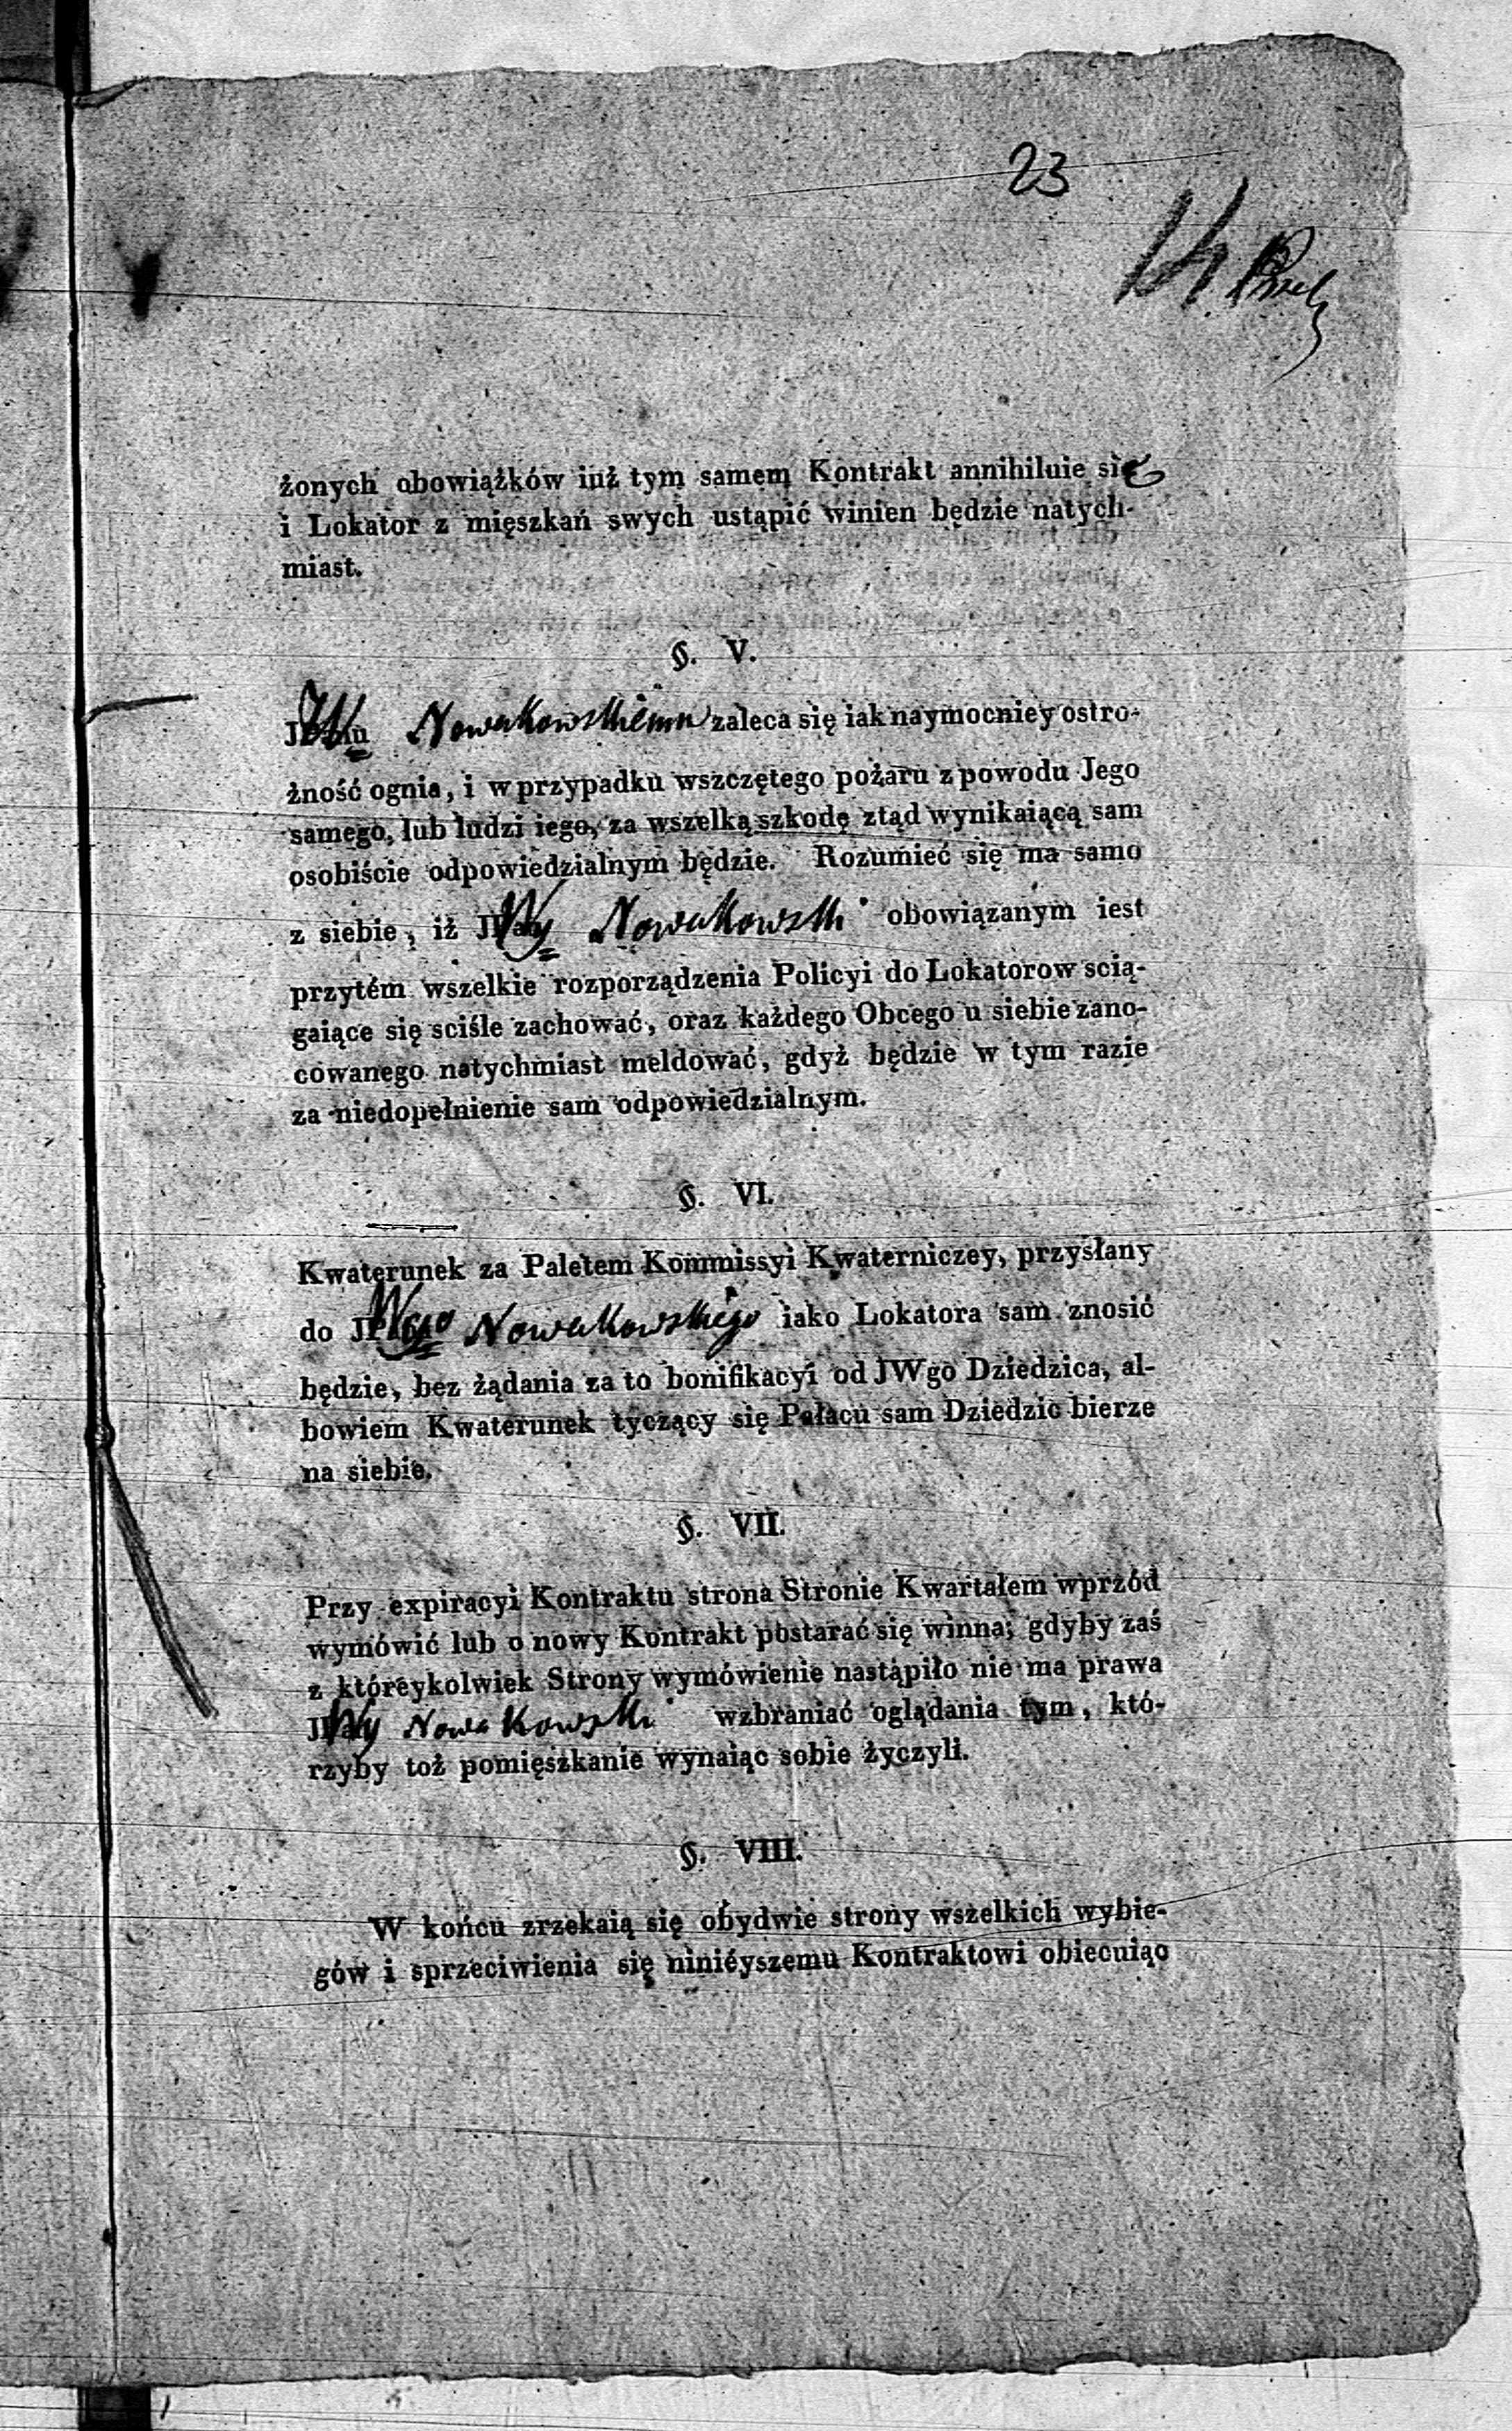 23
żonych obowiążków iuż tym samem Kontrakt annihiluie się
i Lokator z mięszkań swych ustąpić winien będzie natych-
miast.
§. V.
Nowakowskiemu zaleca się iak naymocniey ostro-
żność ognia, i w przypadku wszczętego pożaru z powodu Jego
samego, lub ludzi iego, za wszelką szkodę ztąd wynikaiącą sam
osobiście odpowiedzialnym będzie. Rozumieć się ma samo
z siebie, iż Wny Nowakowski obowiązanym iest
przytém wszelkie rozporządzenia Policyi do Lokatorow scią-
gaiące się sciśle zachować, oraz każdego Obcego u siebie zano-
cowanego natychmiast meldować, gdyż będzie w tym razie
za niedopełnienie sam odpowiedzialnym.
§. VI.
Kwaterunek za Paletem Kommissyi Kwaterniczey, przysłany
do Wgo Nowakowskiego iako Lokatora sam znosić
będzie, bez żądania za to bonifikacyi od JWgo Dziedzica, al-
bowiem Kwaterunek tyczący się Pałacu sam Dziedzic bierze
na siebie.
§. VII.
Przy expiracyi Kontraktu strona Stronie Kwartałem wprzód
wymówić lub o nowy Kontrakt postarać się winna; gdyby zaś
z któréykolwiek Strony wymówienie nastąpiło nie ma prawa
Wny Nowakowski wzbraniać oglądania tym, któ-
rzyby toż pomięszkanie wynaiąc sobie życzyli.
§. VIII.
W końcu zrzekaią się obydwie strony wszelkich wybie-
gów i sprzeciwienia się niniéyszemu Kontraktowi obiecuiąc